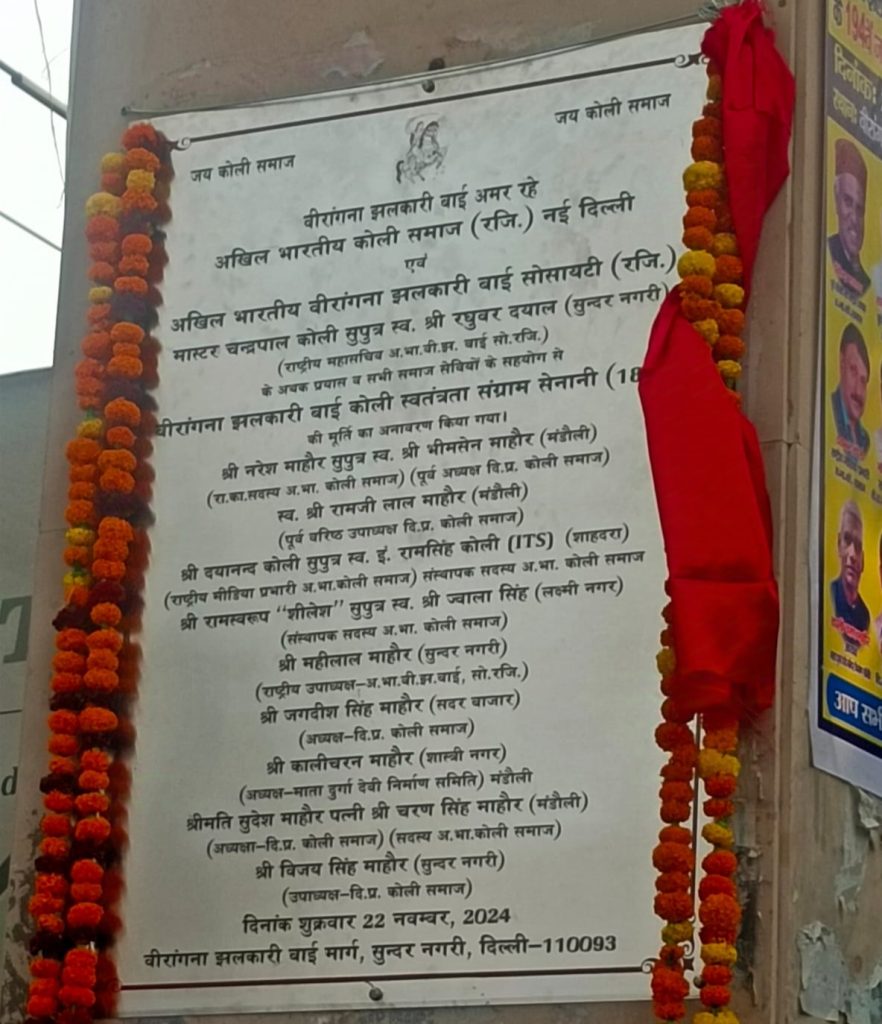 जय कोली समाज
जय कोली समाज
वीरांगना झलकारी बाई अमर रहे
अखिल भारतीय कोली समाज (रजि.) नई दिल्ली
एवं
अखिल भारतीय वीरांगना झलकारी बाई सोसायटी (रजि.)
मास्टर चन्द्रपाल कोली सुपुत्र स्व. श्री रघुवर दयाल (सुन्दर नगरी)
(राष्ट्रीय महासचिव अ.भा.वी.झ. बाई सो.रजि.)
के अथक प्रयास व सभी समाज सेवियों के सहयोग से
वीरांगना झलकारी बाई कोली स्वतंत्रता संग्राम सेनानी (18
की मूर्ति का अनावरण किया गया।
श्री नरेश माहौर सुपुत्र स्व. श्री भीमसेन माहौर (मंडौली)
(रा.का.सदस्य अ.भा. कोली समाज) (पूर्व अध्यक्ष दि.प्र. कोली समाज)
स्व. श्री रामजी लाल माहौर (मंडौली)
(पूर्व वरिष्ठ उपाध्यक्ष दि.प्र. कोली समाज)
श्री दयानन्द कोली सुपुत्र स्व. इं. रामसिंह कोली (ITS) (शाहदरा)
(राष्ट्रीय मीडिया प्रभारी अ.भा.कोली समाज) संस्थापक सदस्य अ.भा. कोली समाज
श्री रामस्वरूप "शीलेश" सुपुत्र स्व. श्री ज्वाला सिंह (लक्ष्मी नगर)
(संस्थापक सदस्य अ.भा. कोली समाज)
श्री महीलाल माहौर (सुन्दर नगरी)
(राष्ट्रीय उपाध्यक्ष-अ.भा.वी.झ.बाई, सो.रजि.)
श्री जगदीश सिंह माहौर (सदर बाजार)
(अध्यक्ष-दि.प्र. कोली समाज)
श्री कालीचरन माहौर (शास्त्री नगर)
(अध्यक्ष-माता दुर्गा देवी निर्माण समिति) मंडौली
श्रीमति सुदेश माहौर पत्नी श्री चरण सिंह माहौर (मंडौली)
(अध्यक्षा-दि.प्र. कोली समाज) (सदस्य अ.भा.कोली समाज)
श्री विजय सिंह माहौर (सुन्दर नगरी)
(उपाध्यक्ष-दि.प्र. कोली समाज)
दिनांक शुक्रवार 22 नवम्बर, 2024
वीरांगना झलकारी बाई मार्ग, सुन्दर नगरी, दिल्ली-110093
के 194वें
दिनांक:
स्थान:
आप सभी